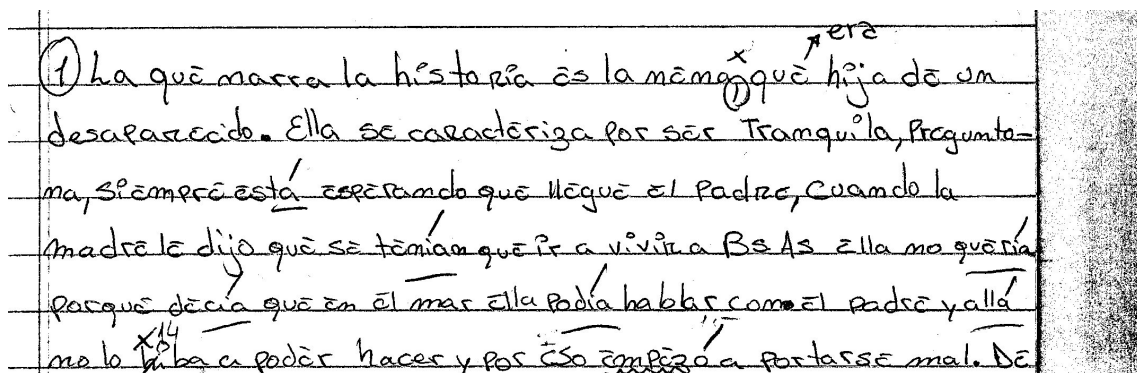 era
① La que narra la historia es la nena x① que hija de un
desaparecido. Ella se caracteriza por ser Tranquila, Pregunto-
na, siempre está esperando que llegue el Padre, cuando la
madre le dijo que se tenían que ir a vivir a Bs As ella no quería
porque decía que en el mar ella podía hablar con el padre y allá
x14
no lo hiba a poder hacer y por eso empezó a portarse mal. De